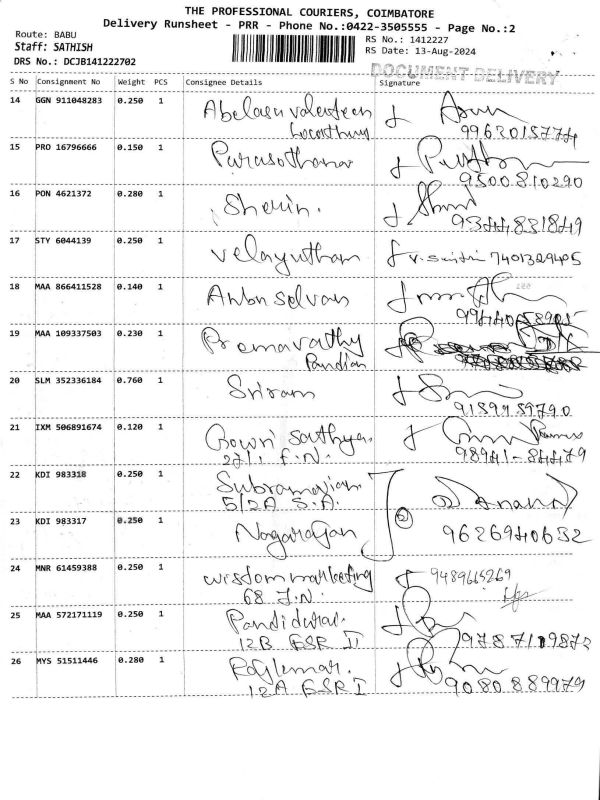 THE PROFESSIONAL COURIERS, COIMBATORE
Delivery Runsheet - PRR - Phone No.:0422-3505555 - Page No.:2
Route: BABU
RS No.: 1412227
Staff: SATHISH
RS Date: 13-Aug-2024
DRS No.: DCJB141222702
DOCUMENT DELIVERY
S No Consignment No Weight PCS Consignee Details Signature
14 GGN 911048283 0.250 1
9962015774
15 PRO 16796666 0.150 1 Parasothaman
9500810290
16 PON 4621372 0.280 1 Sherin.
9344831849
17 STY 6044139 0.250 1 Velayutham 7401329495
18 MAA 866411528 0.140 1 Anbu selvan
19 MAA 109337503 0.230 1 Premavathy
Pandian
20 SLM 352336184 0.760 1 Sriram
9159959790
21 IXM 506891674 0.120 1 Gowri Sathya.
98941-84479
22 KDI 983318 0.250 1 Subramanian Anand
5/2A S.A.
23 KDI 983317 0.250 1 Nagarajan 9626940652
24 MNR 61459388 0.250 1 wisdom marketing 9489665269
68 J.N.
25 MAA 572171119 0.250 1 Pandidurai.
12B ESR II 9787109872
26 MYS 51511446 0.280 1 Rajkumar.
12A ESR I 9080889979